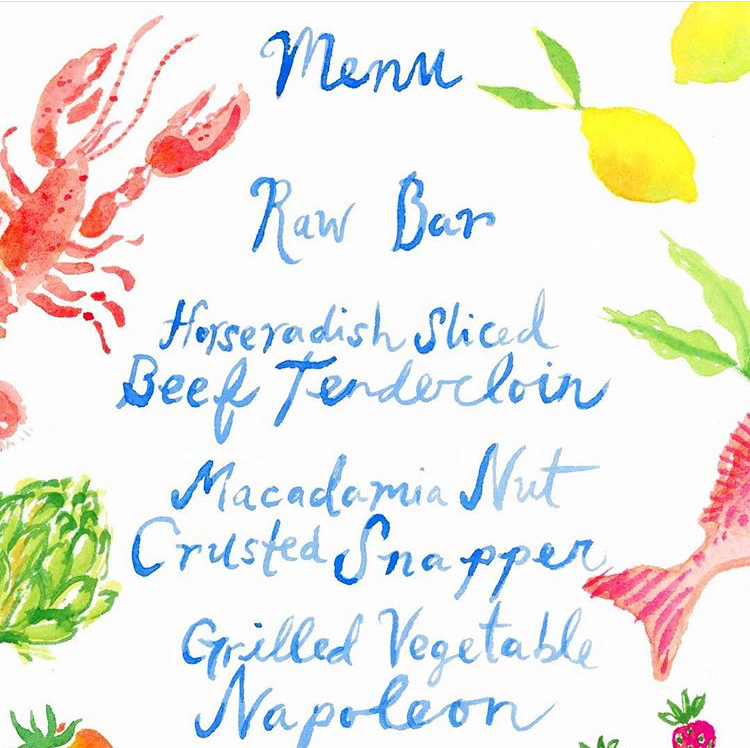 Menu
Raw Bar
Horseradish Sliced
Beef Tendercloin
Macadamia Nut
Crusted Snapper
Grilled Vegetable
Napoleon